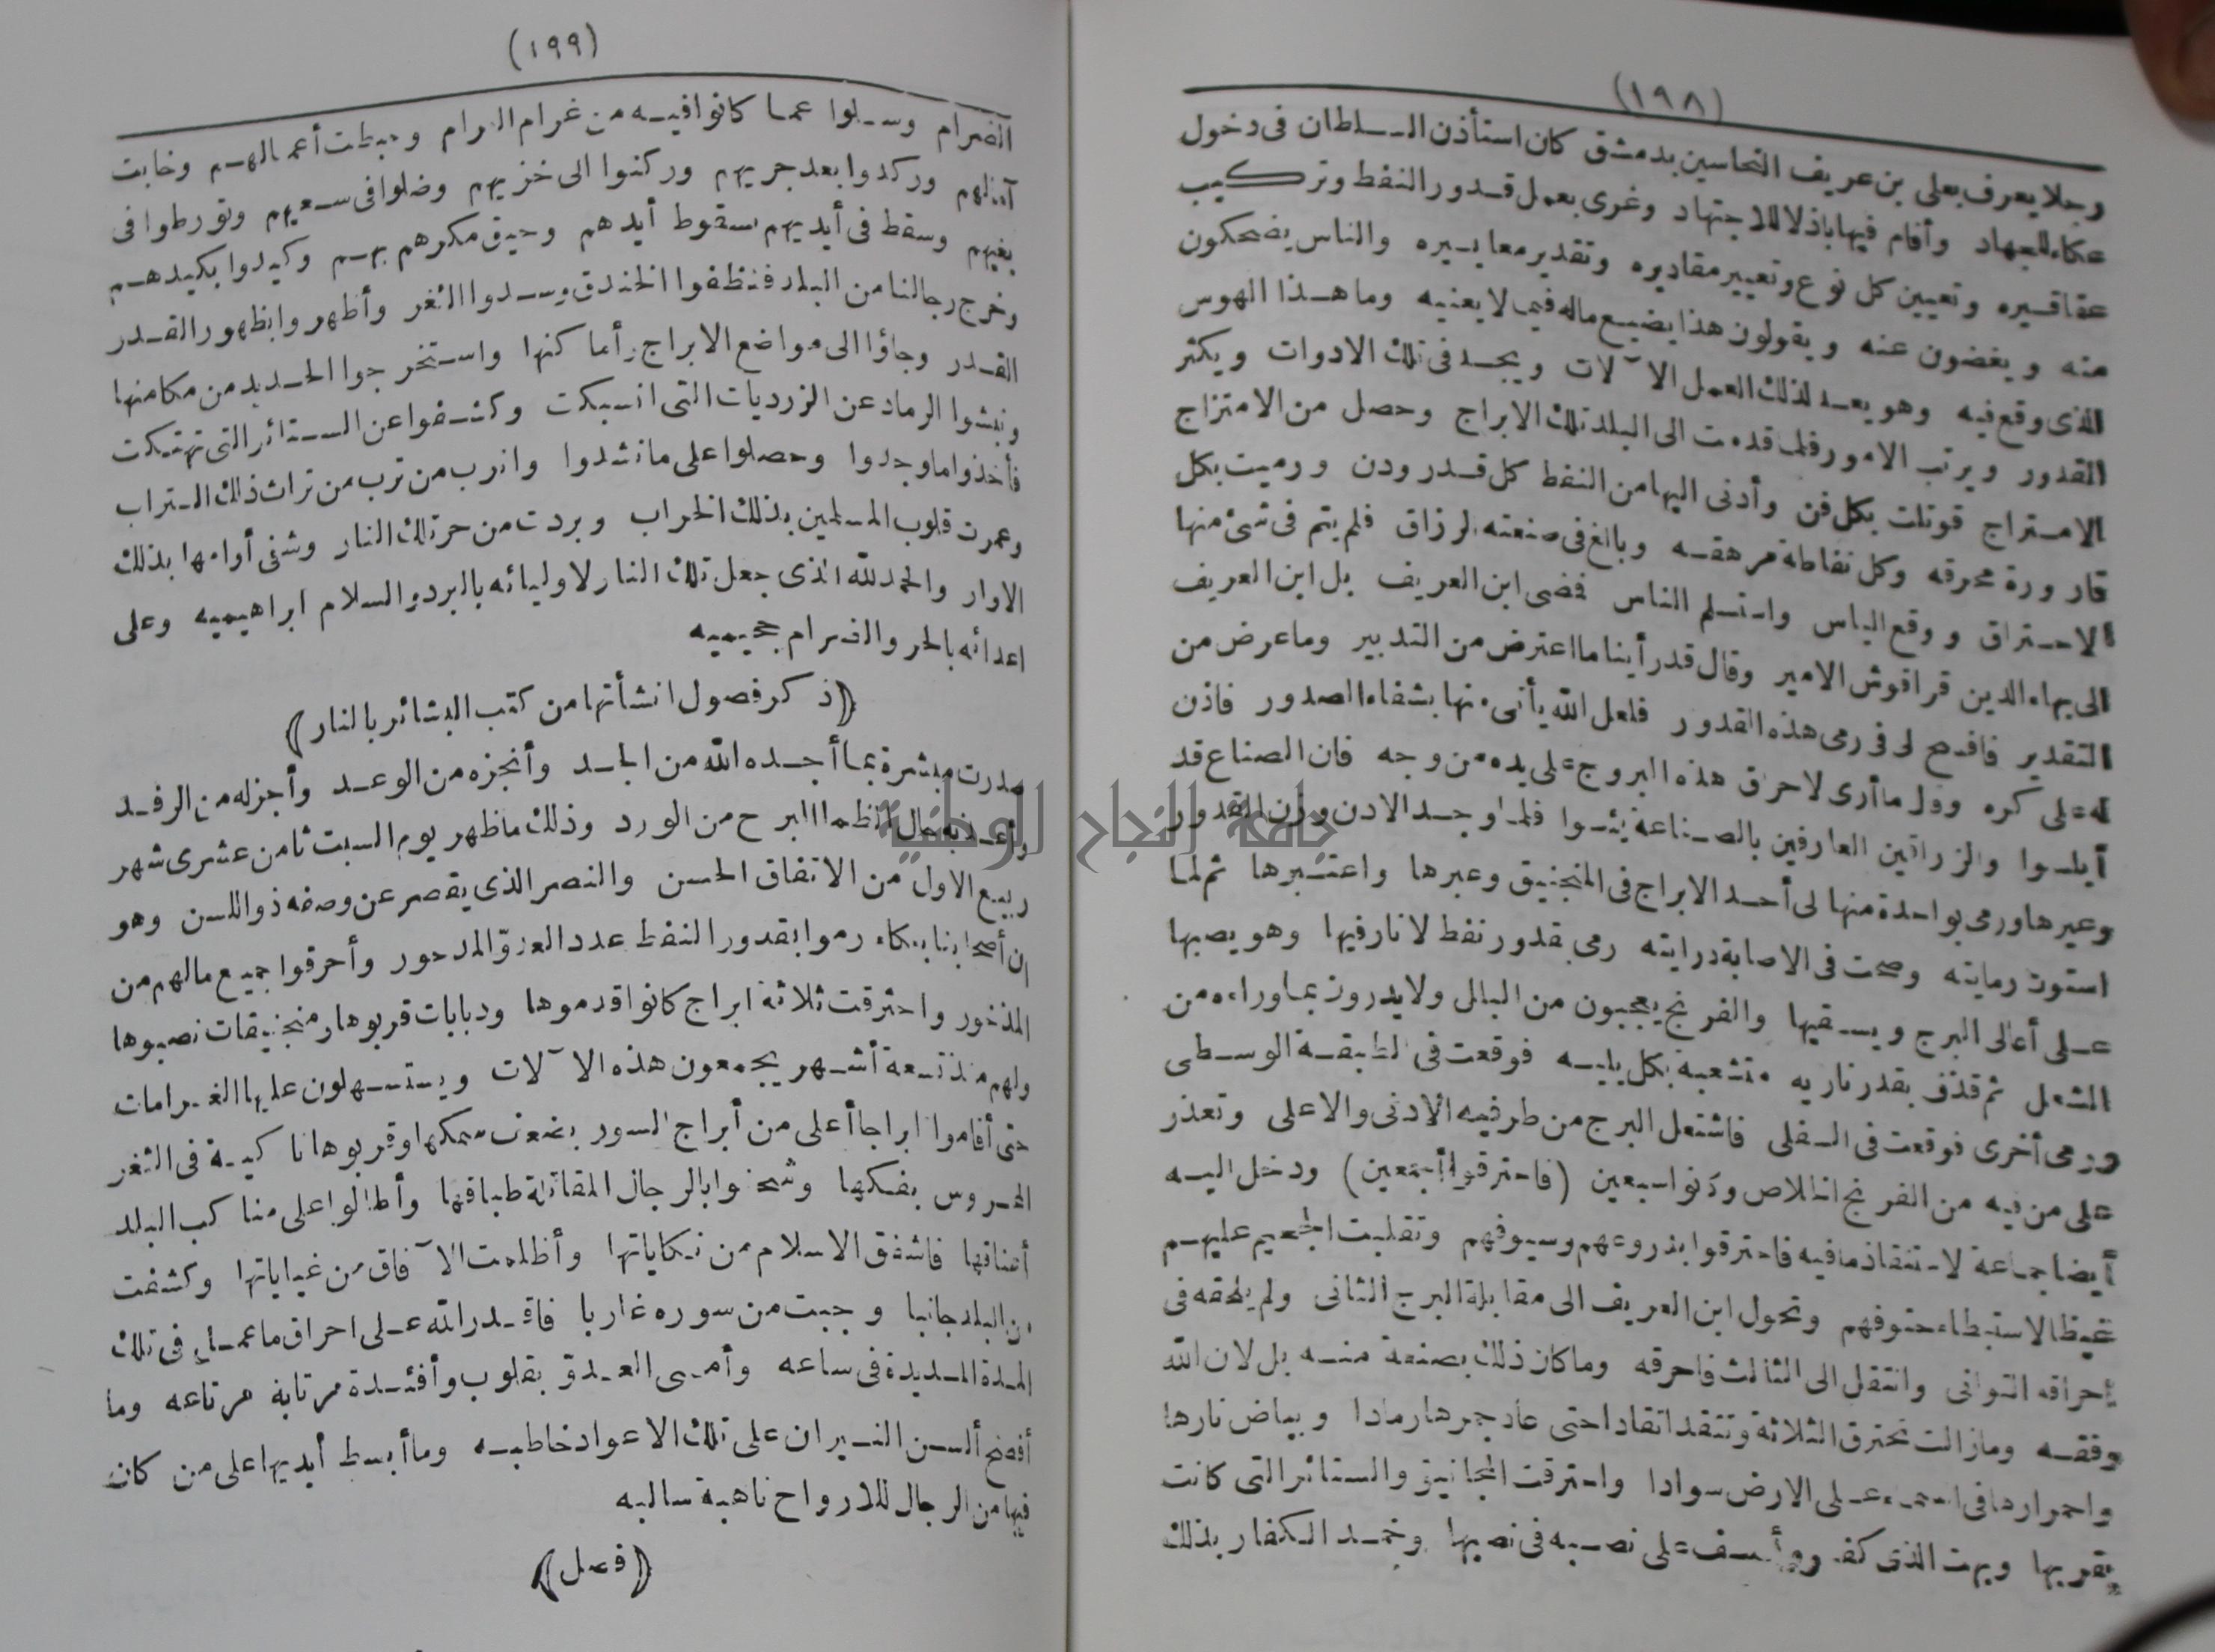 (١٩٨)
رجلا يعرف بعلى بن عريف النحاسين بدمشق كان استأذن السلطان فى دخول
عكاء للجهاد وأقام فيها باذلا للاجتهاد وغرى بعمل قدور النفط وتركيب
عقاقيره وتعيين كل نوع وتعيير مقاديره وتقدير معاييره والناس يضحكون
منه ويغضون عنه ويقولون هذا يضيع ماله فيما لا يعنيه وما هذا الهوس
الذى وقع فيه وهو يعد لذلك العمل الآلات ويجد فى تلك الادوات ويكثر
القدور ويرتب الامور فلما قدمت الى البلد تلك الابراج وحصل من الامتزاج
الامتراج قوتلت بكل فن وأدنى اليها من النفط كل قدر ودن ورميت بكل
قارورة محرقه وكل نفاطة مرهقه وبالغ فى صنعته الزراق فلم يتم فى شئ منها
الاحتراق ووقع الياس واستسلم الناس فمضى ابن العريف بل ابن العريف
الى بهاء الدين قراقوش الامير وقال قد رأينا ما اعترض من التدبير وما عرض من
التقدير فافسح لى فى رمى هذه القدور فلعل الله يأتى منها بشفاء الصدور فاذن
له على كره وقال ما أرى لاحراق هذه البروج على يده من وجه فان الصناع قد
أيلسوا والزراقين العارفين بالصناعة يئسوا فلما وجد الاذن وزن القدور
وعيرها ورمى بواحدة منها لى أحد الابراج فى المنجنيق وعبرها واعتبرها ثم لما
استوت رمايته وصحت فى الاصابة درايته رمى بقدور نفط لا نار فيها وهو يصبها
على أعالى البرج ويسقيها والفرنج يعجبون من البلل ولا يدرون بما وراءه من
الشعل ثم قذف بقدر ناريه متشعبة بكل بليه فوقعت فى الطبقة الوسطى
ورمى أخرى فوقعت فى السفلى فاشتعل البرج من طرفيه الادنى والاعلى وتعذر
على من فيه من الفرنج الخلاص وكانوا سبعين (فاحترقوا أجمعين) ودخل اليه
أيضا جماعة لاستنقاذ ما فيه فاحترقوا بدروعهم وسيوفهم وتقلبت الجحيم عليهم
غيظا لاستبطاء حتوفهم وتحول ابن العريف الى مقابلة البرج الثانى ولم يلحقه فى
إحراقه التوانى وانتقل الى الثالث فاحرقه وما كان ذلك بصنعة منه بل لان الله
وفقه وما زالت تحترق الثلاثة وتتقد اتقادا حتى عاد جمرها رمادا وبياض نارها
واحمرارها فى على الارض سوادا واحترقت المجانيق والستائر التى كانت
بقربها وبهت الذى كفر وأسف على نصبه فى نصبها وخمد الكفار بذلك
(١٩٩)
الضرام وسلوا عما كانوا فيه من غرام المرام وحبطت أعمالهم وخابت
آمالهم وركدوا بعد جريهم وركنوا الى خزيهم وضلوا فى سعيهم وتورطوا فى
بغيهم وسقط فى أيديهم سقوط أيدهم وحيق مكرهم بهم وكيدوا بكيدهم
وخرج رجالنا من البلد فنظفوا الخندق وسدوا الثغر وأظهروا بظهور القدر
القدر وجاؤا الى مواضع الابراج وأماكنها واستخرجوا الحديد من مكامنها
ونبشوا الرماد عن الزرديات التى انسبكت وكشفوا عن الستائر التى تهتكت
فأخذوا ما وجدوا وحصلوا على ما نشدوا وانرب من ترب من تراث ذلك التراب
وعمرت قلوب المسلمين بذلك الخراب وبردت من حر تلك النار وشفى أوامها بذلك
الاوار والحمد لله الذى جعل تلك النار لاوليائه بالبرد والسلام ابراهيميه وعلى
اعدائه بالحر والضرام جحيميه
(ذكر فصول انشأتها من كتب البشائر بالنار)
صدرت مبشرة بما أجده الله من الجد وأنجزه من الوعد وأجزله من الرفد
وأعذبه من الورد وذلك ما ظهر يوم السبت ثامن عشرى شهر
ربيع الاول من الاتفاق الحسن والنصر الذى يقصر عن وصفه ذو اللسن وهو
ان أصحابنا بعكاء رموا بقدور النفط عدد العدوّ المدحور وأحرقوا جميع مالهم من
المذخور واحترقت ثلاثة ابراج كانوا قدموها ودبابات قربوها ومنجنيقات نصبوها
ولهم مذ تسعة أشهر يجمعون هذه الآلات ويستسهلون عليها الغرامات
حتى أقاموا ابراجا أعلى من أبراج السور بضعف سمكها وقربوها ناكية فى الثغر
المحروس بفتكها وشحنوا بالرجال المقاتلة طباقها وأطالوا على مناكب البلد
أعناقها فاشفق الاسلام من نكاياتها وأظلمت الآفاق من غياياتها وكشفت
من البلد جانبا وجبت من سوره غاربا فاقدر الله على احراق ما عمل فى تلك
المدة المديدة فى ساعه وأمسى العدوّ بقلوب وأفئدة مرتابة مرتاعه وما
أفصح ألسن النيران على تلك الاعواد خاطبه وما أبسط أيديها على من كان
فيها من الرجال للارواح ناهبة سالبه
(فصل)
جامعة النجاح الوطنية